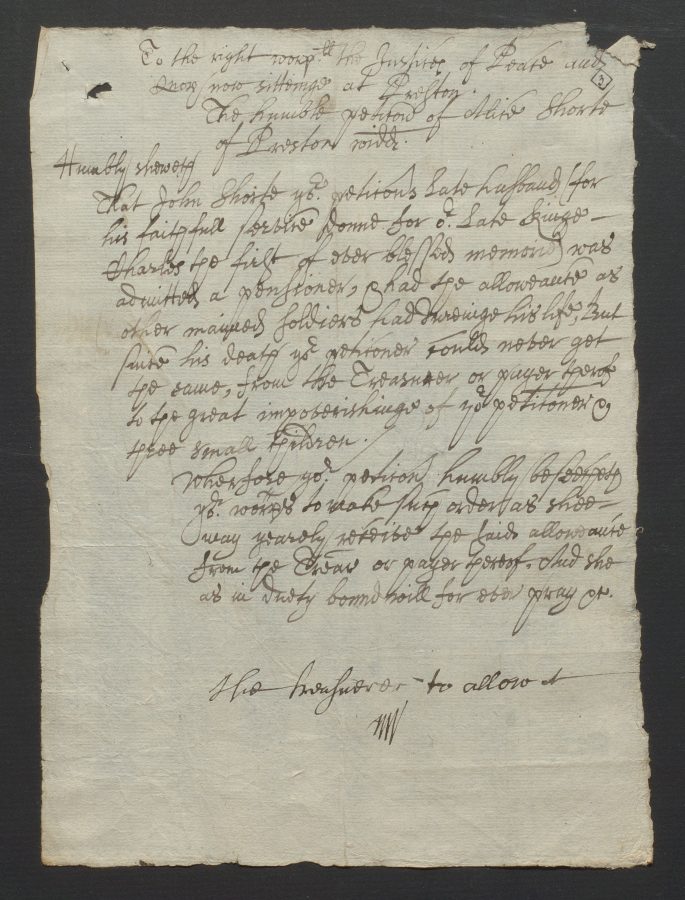 To the right worp:ll the Justices of Peace and
now sittinge at Preston.
3
The humble peticon of Alice Shorte
of Preston widd:
Humbly sheweth
That John Shorte yor. peticoners Late husband (for
his faithfull service donne for or. Late Kinge
Charles the first of ever blessed memorie) was
admitted a pensioner, & had the alloweance as
other maymed soldiers had dureinge his life, But
since his death yor. petitioner could never get
the same, from the Treasurer or payer thereof
to the great impoverishinge of yor. petitioner &
three small children.
Wherefore yor. peticonr humbly beseecheth
yor. worpps to make such order as shee
may yearely receive the said alloweance
from the Treasr or payer thereof. And she
as in duety bound will for ever pray &c.
the treasurer to allow it